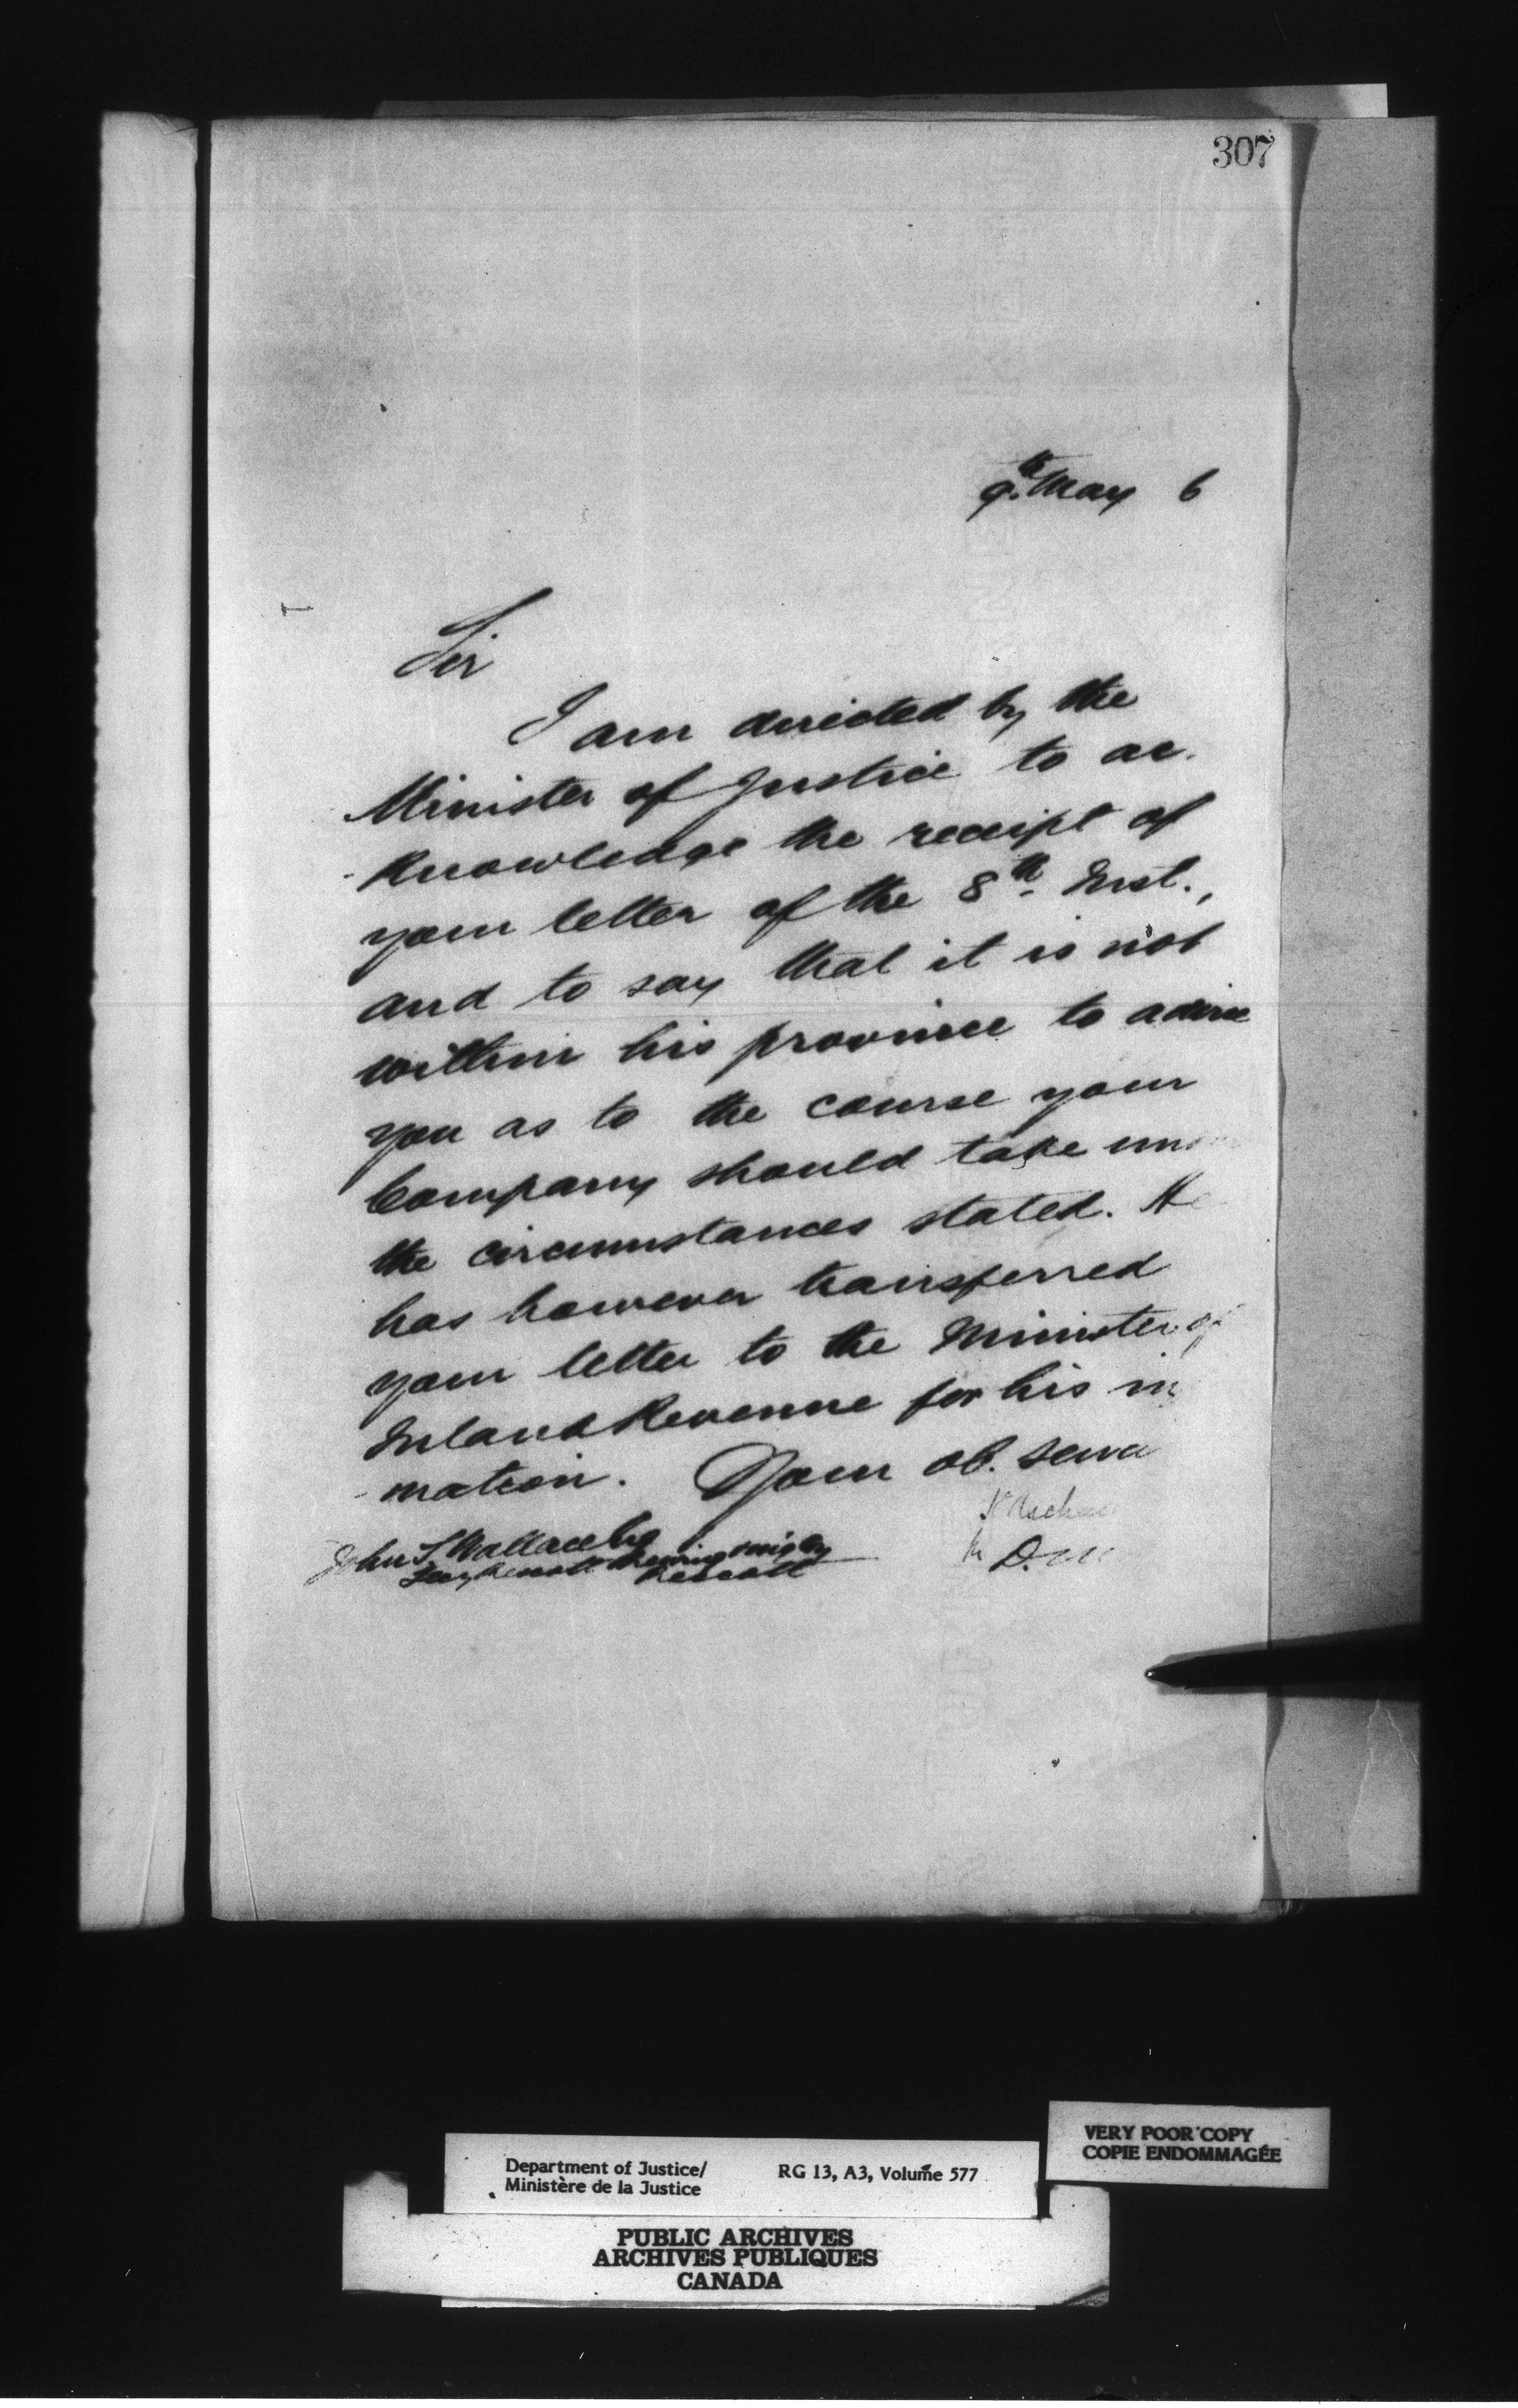 307
9th. May 6
Sir
I am directed by the
Minister of Justice to ac-
knowledge the receipt of
your letter of the 8th. Inst.,
and to say that it is not
within his province to advise
you as to the course your
Company should take under
the circumstances stated. He
has however transferred
your letter to the Minister of
Inland Revenue for his in
mation. Your ob. serva
John S Wallace
Secy Prescott Brewing
Prescott
D.M.
VERY POOR COPY
COPIE ENDOMMAGÉE
Department of Justice/ RG 13, A3, Volume 577
Ministère de la Justice
PUBLIC ARCHIVES
ARCHIVES PUBLIQUES
CANADA